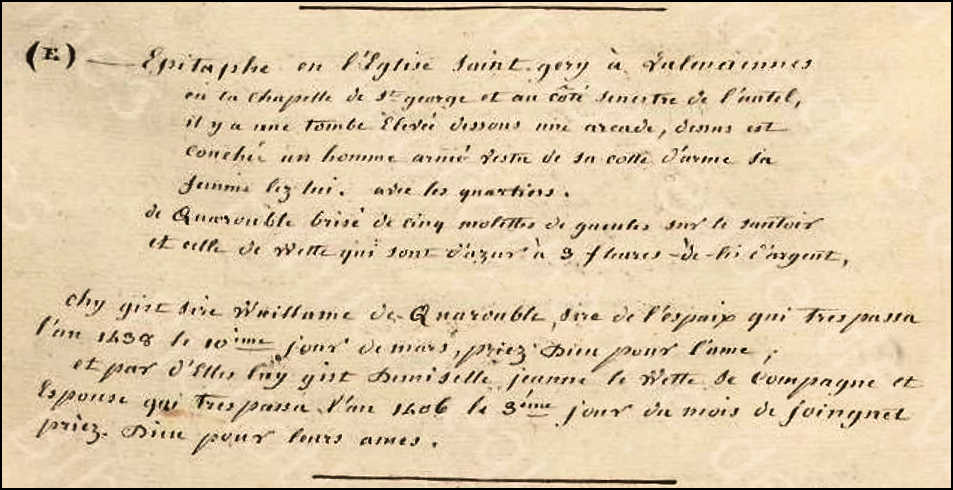 (E) — Epitaphe en l'Eglise Saint gery à Valenciennes
en la chapelle de St george et au côté senestre de l'autel,
il y a une tombe Elevée dessous une arcade, dessus est
couché un homme armé vestu de sa cotte d'arme sa
femme lez lui. avec les quartiers.
de Quarouble brisé de cinq molettes de gueules sur le sautoir
et celle de Wette qui sont d'azur à 3 fleures-de-lis d'argent,
chy gist sire Wuillame de Quarouble, sire de l'espaix qui trespassa
l'an 1438 le 10ième jour de mars, priez Dieu pour l'ame ;
et par d'Elles luy gist Demiselle jeanne le Wette se Compagne et
Espouse qui trespassa l'an 1406 le 3ème jour du mois de joingnet
priez Dieu pour leurs ames.